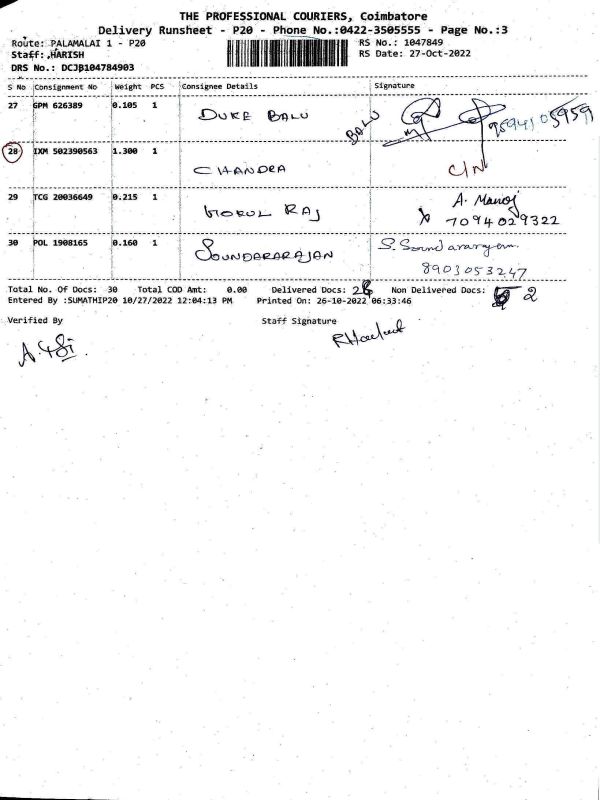 THE PROFESSIONAL COURIERS, Coimbatore
Delivery Runsheet - P20 - Phone No.:0422-3505555 - Page No.:3
Route: PALAMALAI 1 - P20 RS No.: 1047849
Staff: HARISH RS Date: 27-Oct-2022
DRS No.: DCJB104784903
S No Consignment No Weight PCS Consignee Details Signature
27 GPM 626389 0.105 1 DUKE BALU BALU
28 IXM 502390563 1.300 1 CHANDRA C/N
29 TCG 20036649 0.215 1 GOKUL RAJ A. Manoj
7094029322
30 POL 1908165 0.160 1 SOUNDARARAJAN S. Soundararajan
8903053247
Total No. Of Docs: 30 Total COD Amt: 0.00 Delivered Docs: 28 Non Delivered Docs: 2
Entered By :SUMATHIP20 10/27/2022 12:04:13 PM Printed On: 26-10-2022 06:33:46
Verified By Staff Signature